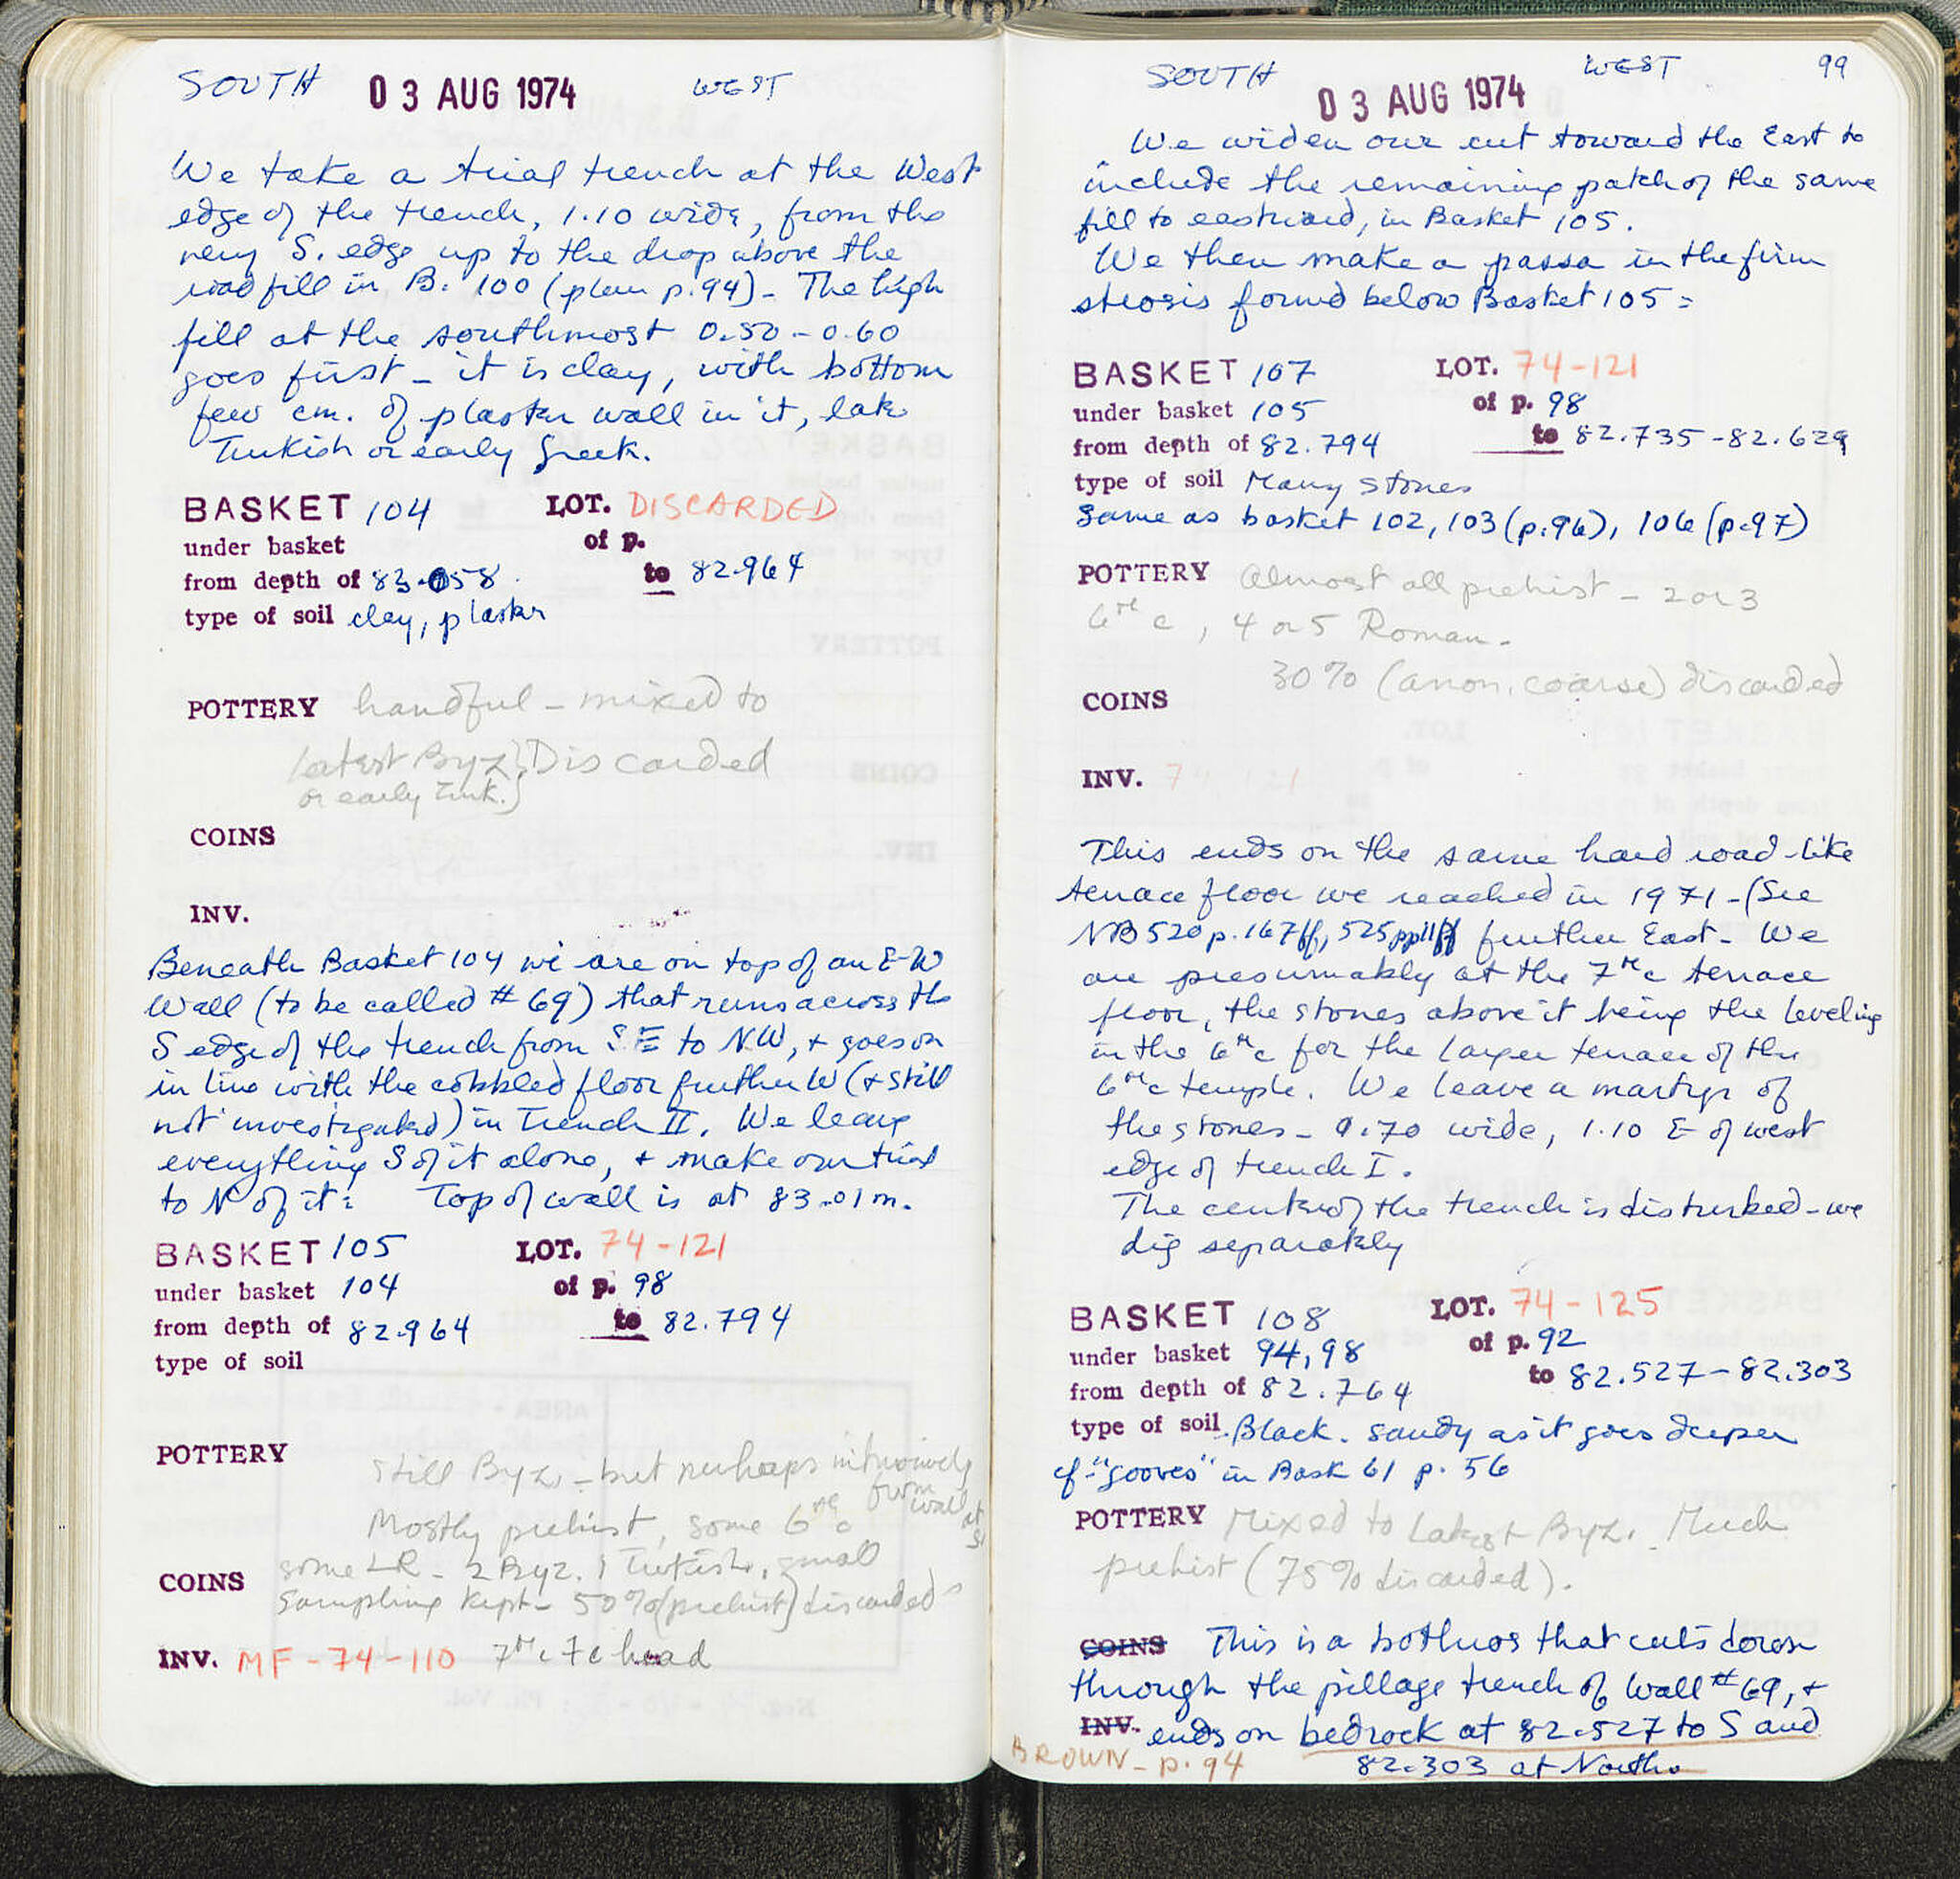 SOUTH 03 AUG 1974 WEST
We take a trial trench at the West
edge of the trench, 1.10 wide, from the
very S. edge up to the drop above the
road fill in B. 100 (plan p.94) - The high
fill at the southmost 0.50 - 0.60
goes first - it is clay, with bottom
few cm. of plaster wall in it, late
Turkish or early Greek.
BASKET 104 LOT. DISCARDED
under basket of p.
from depth of 83.058 to 82.964
type of soil clay, plaster
POTTERY handful - mixed to
latest Byz } Discarded
or early Turk. }
COINS
INV.
Beneath Basket 104 we are on top of an E-W
Wall (to be called # 69) that runs across the
S edge of the trench from SE to NW, + goes on
in line with the cobbled floor further W (+ still
not investigated) in Trench II. We leave
everything S of it alone, + make our trial
to N of it: Top of wall is at 83.01m.
BASKET 105 LOT. 74-121
under basket 104 of p. 98
from depth of 82.964 to 82.794
type of soil
POTTERY still Byz - but perhaps intrusively
from wall at S
Mostly prehist, some 6th c
COINS some LR - 2 Byz. 1 Turkish, small
Sampling kept - 50% (prehist) discarded
INV. MF-74-110 7th c Tc head
SOUTH 03 AUG 1974 WEST 99
We widen our cut toward the East to
include the remaining patch of the same
fill to eastward, in Basket 105.
We then make a passa in the firm
sterosis found below Basket 105 =
BASKET 107 LOT. 74-121
under basket 105 of p. 98
from depth of 82.794 to 82.735 - 82.629
type of soil Many stones
Same as basket 102, 103 (p.96), 106 (p.97)
POTTERY Almost all prehist - 2 or 3
6th c, 4 or 5 Roman.
30% (anon. coarse) discarded
COINS
INV. 74 121
This ends on the same hard road-like
terrace floor we reached in 1971 - (See
NB 520 p. 167ff, 525 pp 11ff further East. We
are presumably at the 7th c terrace
floor, the stones above it being the leveling
in the 6th c for the larger terrace of the
6th c temple. We leave a martyr of
the stones - 0.70 wide, 1.10 E of west
edge of trench I.
The center of the trench is disturbed - we
dig separately
BASKET 108 LOT. 74-125
under basket 94, 98 of p. 92
from depth of 82.764 to 82.527 - 82.303
type of soil Black. sandy as it goes deeper
cf. "gooves" in Bask 61 p. 56
POTTERY Mixed to Latest Byz. Much
prehist (75% discarded).
COINS This is a bothros that cuts down
through the pillage trench of Wall #69, +
INV. ends on bedrock at 82.527 to S and
BROWN - p. 94 82.303 at North.